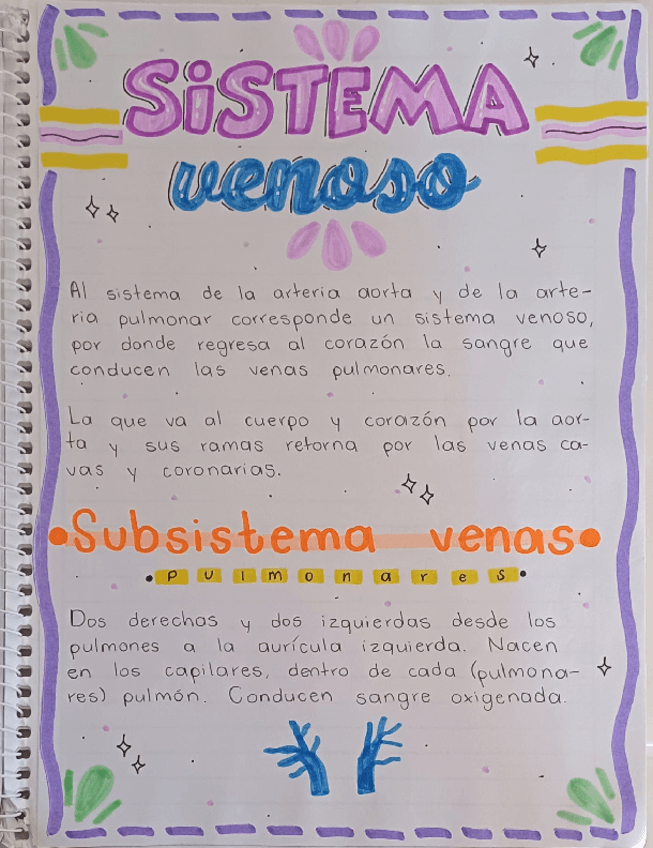 SiSTEMA
venoso
Al sistema de la arteria aorta y de la arte-
ria pulmonar corresponde un sistema venoso,
por donde regresa al corazón la sangre que
conducen las venas pulmonares.
La que va al cuerpo y corazón por la aor-
ta y sus ramas retorna por las venas ca-
vas y coronarias.
•Subsistema venas•
•Pulmonares•
Dos derechas y dos izquierdas desde los
pulmones a la aurícula izquierda. Nacen
en los capilares, dentro de cada (pulmona-
res) pulmón. Conducen sangre oxigenada.